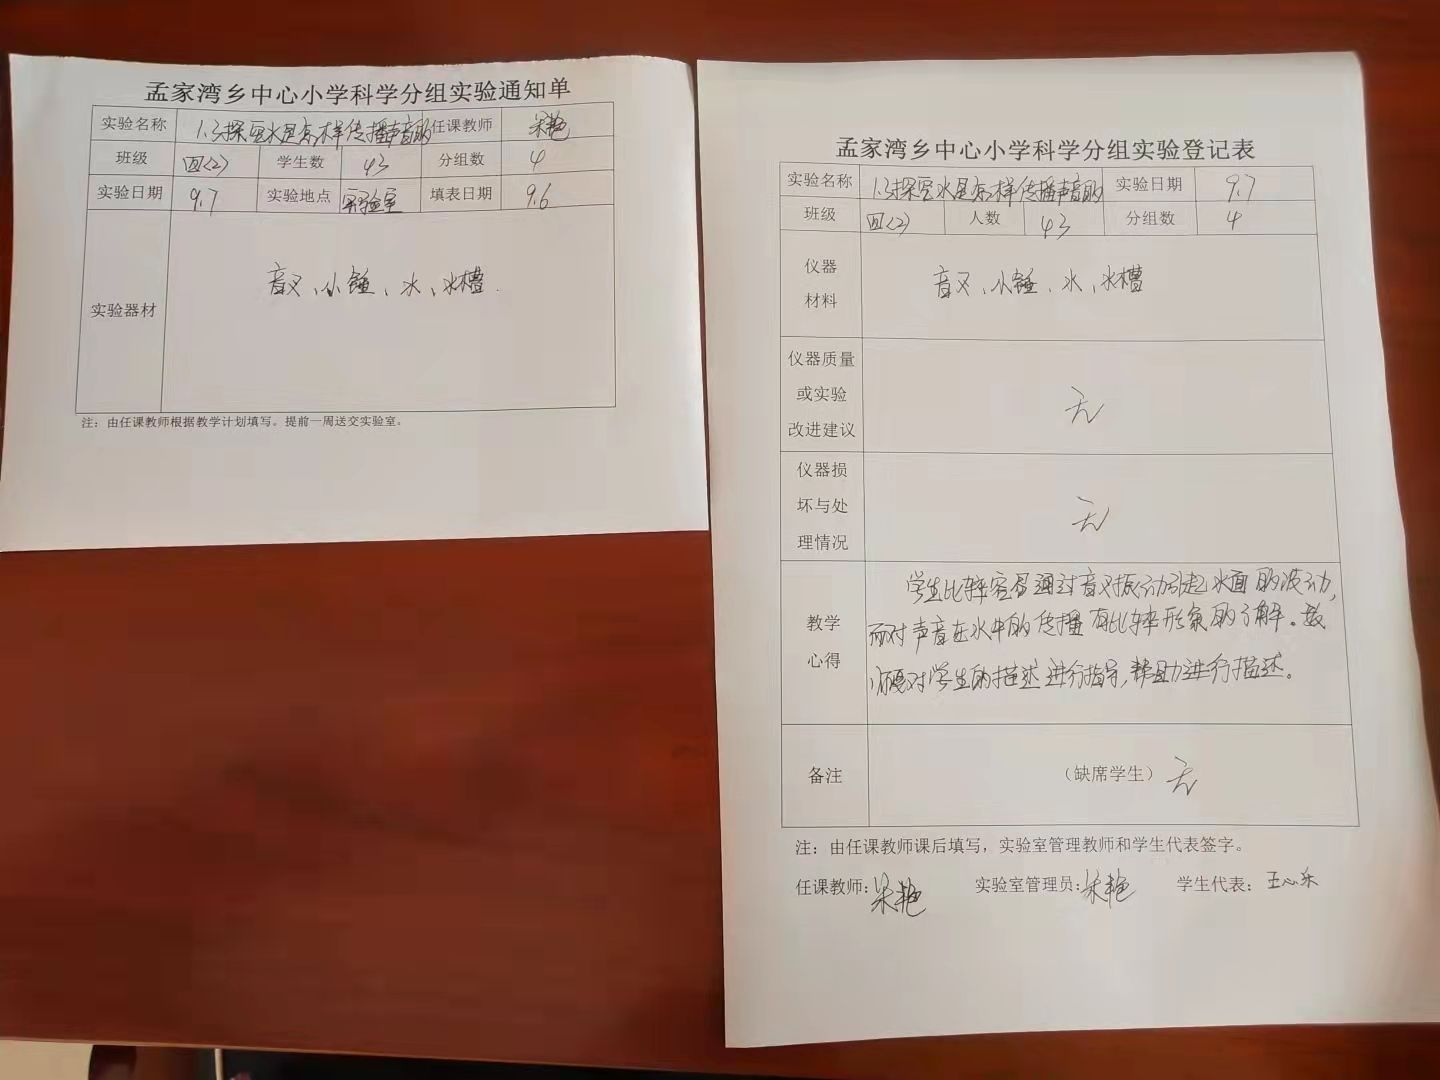 孟家湾乡中心小学科学分组实验通知单
实验名称 1.3探究水是怎样传播声音的 任课教师 宋艳
班级 四(2) 学生数 43 分组数 4
实验日期 9.7 实验地点 实验室 填表日期 9.6
实验器材 音叉、小锤、水、水槽.
注：由任课教师根据教学计划填写。提前一周送交实验室。
孟家湾乡中心小学科学分组实验登记表
实验名称 1.3探究水是怎样传播声音的 实验日期 9.7
班级 四(2) 人数 43 分组数 4
仪器
材料
音叉、小锤、水、水槽
仪器质量
或实验
改进建议
无
仪器损
坏与处
理情况
无
教学
心得
学生比较容易通过音叉振动引起水面的波动,
而对声音在水中的传播有比较形象的了解。教
师要对学生的描述进行指导,帮助进行描述。
备注 （缺席学生）无
注：由任课教师课后填写，实验室管理教师和学生代表签字。
任课教师：宋艳 实验室管理员：宋艳 学生代表：王心乐